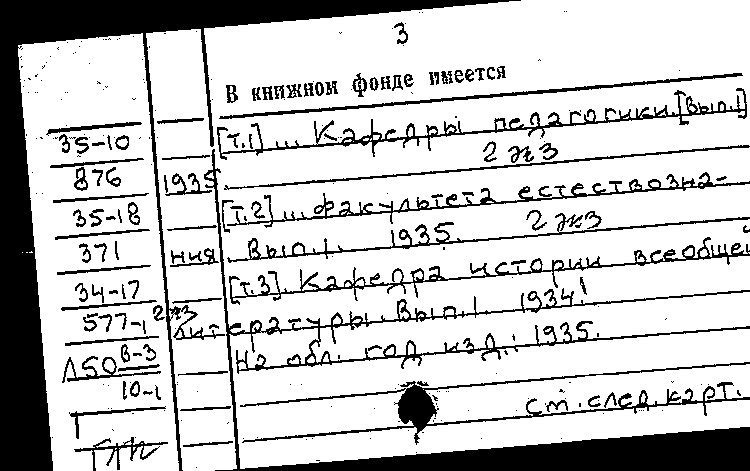 3
В книжном фонде имеется
35-10 [т.1] ... Кафедры педагогики. [Вып.1]
876 1935. 2 экз
35-18 [т.2] ... факультета естествозна-
371 ния. Вып.1. 1935. 2 экз
34-17 [т.3]. Кафедра истории всеобщей
577-1 2 экз литературы. Вып.1. 1934!
Л50 В-3 На обл. год изд.: 1935.
10-1
см. след. карт.